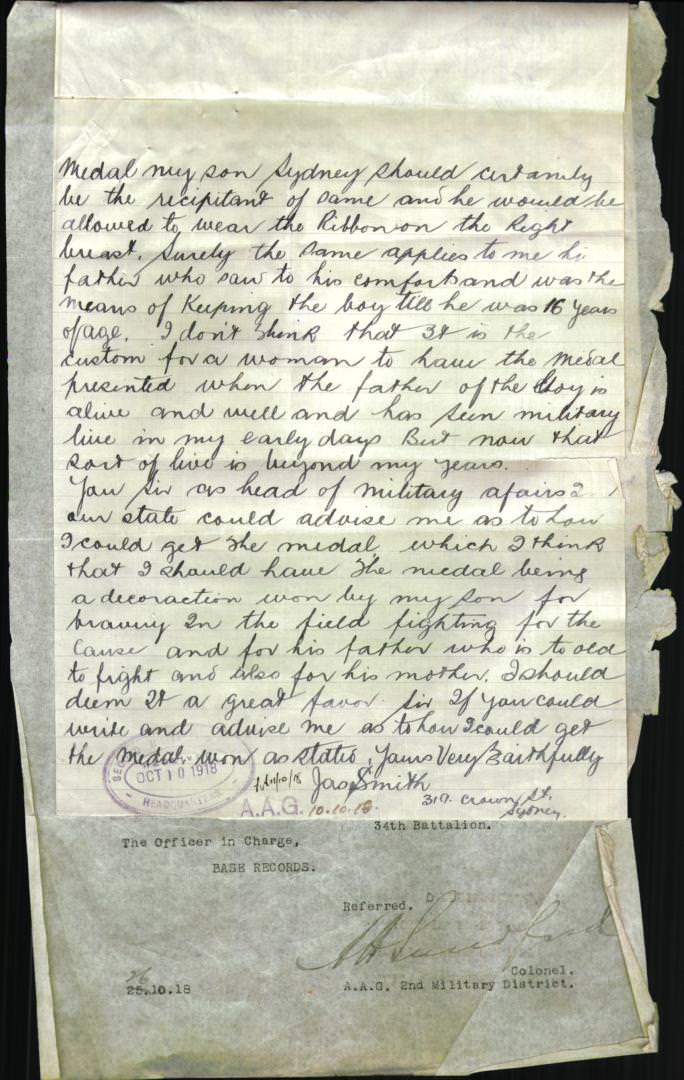 Medal my son Sydney should certainly
be the recipitant of same and he would be
allowed to wear the Ribbon on the Right
breast. Surely the same applies to me his
father who saw to his comforts and was the
means of Keeping the boy till he was 16 years
of age. I don't think that It is the
custom for a woman to have the Medal
presented when the father of the boy is
alive and well and has seen military
live in my early days But now that
sort of live is beyond my years.
You Sir as head of military afairs In
our state could advise me as to how
I could get the medal, which I think
that I should have The medal being
a decoraction won by my son for
bravery In the field fighting for the
Cause and for his father who is to old
to fight and also for his mother. I should
deem It a great favor Sir If you could
write and advise me as to how I could get
the Medal won as stated, Yours Very Faithfully
Jas Smith
317. Crown St.
Sydney.
OCT 10 1918
HEADQUARTERS
A.A.G. 10.10.18.
34th Battalion.
The Officer in Charge,
BASE RECORDS.
Referred.
Colonel.
26
25.10.18
A.A.G. 2nd Military District.